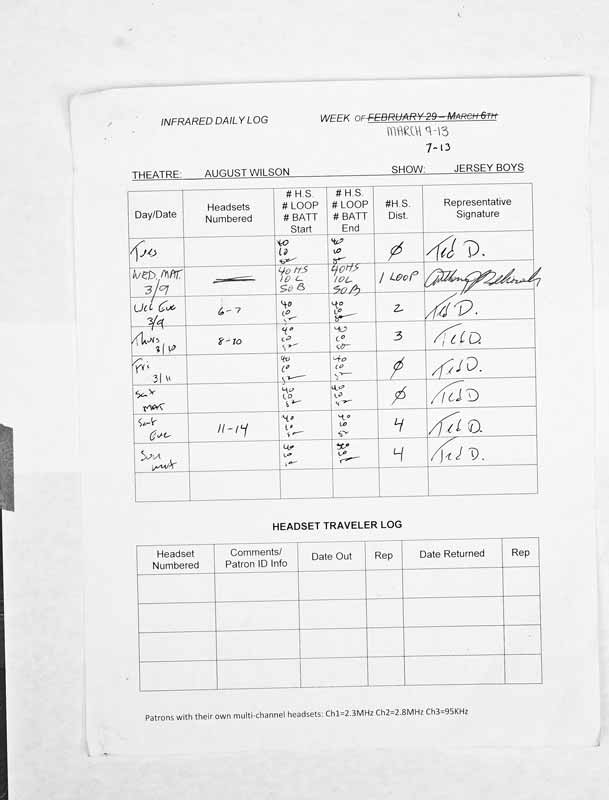 INFRARED DAILY LOG WEEK OF FEBRUARY 29 – MARCH 6TH
MARCH 7-13
7-13
THEATRE: AUGUST WILSON SHOW: JERSEY BOYS
Day/Date Headsets Numbered # H.S. # LOOP # BATT Start # H.S. # LOOP # BATT End #H.S. Dist. Representative Signature
Tues 40 10 50 40 10 50 Ø Ted D.
WED. MAT. 3/9 40 HS 10 L 50 B 40 HS 10 L 50 B 1 LOOP
Wed Eve 3/9 6-7 40 10 50 40 10 50 2 Ted D.
Thurs 3/10 8-10 40 10 50 40 10 50 3 Ted D.
Fri 3/11 40 10 50 40 10 50 Ø Ted D.
Sat MAT 40 10 50 40 10 50 Ø Ted D
Sat Eve 11-14 40 10 50 40 10 50 4 Ted D.
Sun mat 40 10 50 40 10 50 4 Ted D.
HEADSET TRAVELER LOG
Headset Numbered Comments/ Patron ID Info Date Out Rep Date Returned Rep
Patrons with their own multi-channel headsets: Ch1=2.3MHz Ch2=2.8MHz Ch3=95KHz